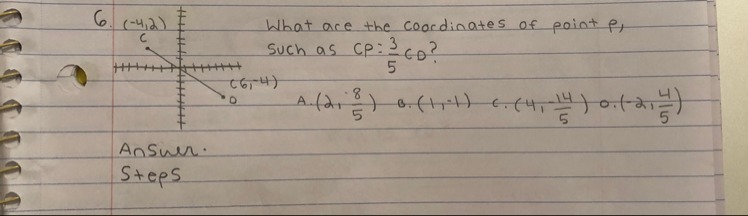 6. (-4,2) What are the coordinates of point P,
C such as CP = 3/5 CD?
(6,-4)
D
A. (2, -8/5) B. (1,-1) C. (4, -14/5) D. (-2, 4/5)
Answer.
Steps